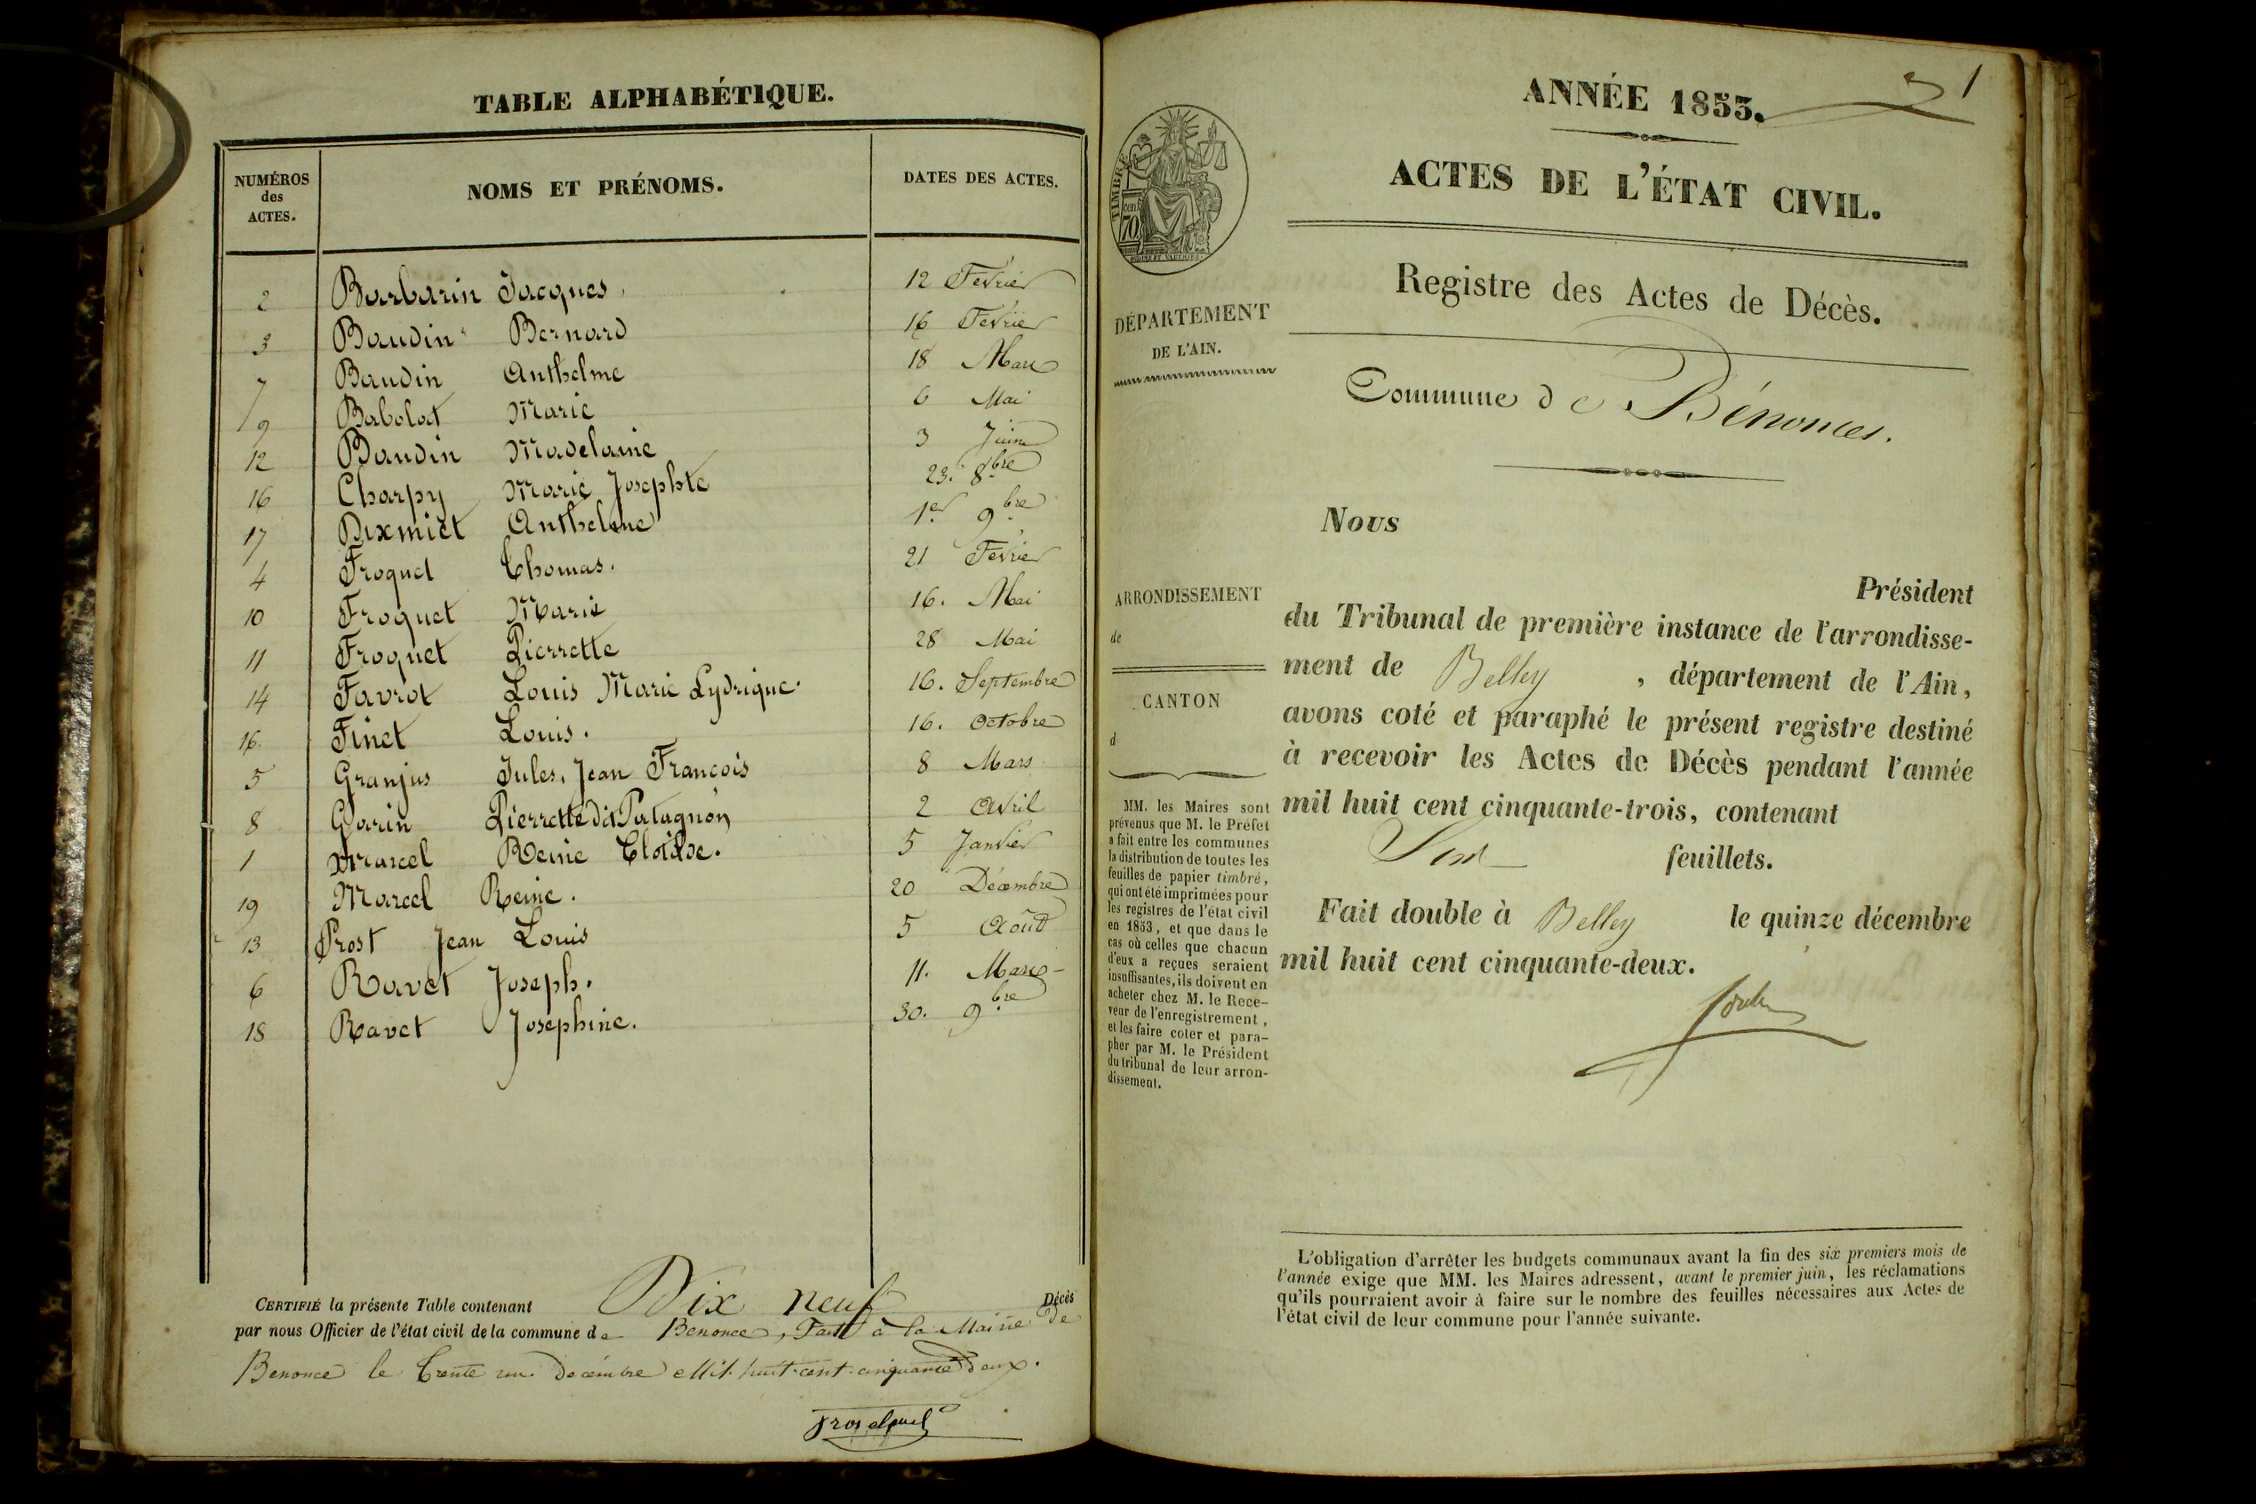 TABLE ALPHABÉTIQUE.
NUMÉROS
des
ACTES.
NOMS ET PRÉNOMS.
DATES DES ACTES.
2 Barbarin Jacques. 12 Fevrier
3 Baudin Bernard 16 Fevrier
7 Baudin Anthelme 18 Mars
9 Babolat Marie 6 Mai
12 Baudin Madelaine 3 Juin
16 Charpy Marie Josephte 23. 8bre
17 Dixmiet Anthelme 1er 9bre
4 Froquet Thomas. 21 Fevrier
10 Froquet Marie 16. Mai
11 Froquet Pierrette 28 Mai
14 Favrot Louis Marie Lydrique. 16. Septembre
16. Finet Louis. 16. Octobre
5 Granjus Jules, Jean François 8 Mars
8 Garin Pierrette dit Patagnon 2 Avril
1 Marcel Reine Cloïde. 5 Janvier
19 Marcel Reine. 20 Décembre
13 Prost Jean Louis 5 Août
6 Ravet Joseph. 11. Mars
18 Ravet Josephine. 30. 9bre
CERTIFIÉ la présente Table contenant Dix neuf Décès
par nous Officier de l'état civil de la commune de Benonce, Fait à la Mairie de
Benonce le Trente un Decembre Mil huit cent cinquante Deux.
ANNÉE 1853.
1
ACTES DE L'ÉTAT CIVIL.
TIMBRE
70
DÉPARTEMENT
DE L'AIN.
Registre des Actes de Décès.
Commune de Bénonces.
ARRONDISSEMENT
de
CANTON
d
MM. les Maires sont
prévenus que M. le Préfet
a fait entre les communes
la distribution de toutes les
feuilles de papier timbré,
qui ont été imprimées pour
les registres de l'état civil
en 1853, et que dans le
cas où celles que chacun
d'eux a reçues seraient
insuffisantes, ils doivent en
acheter chez M. le Rece-
veur de l'enregistrement,
et les faire coter et para-
pher par M. le Président
du tribunal de leur arron-
dissement.
Nous
Président
du Tribunal de première instance de l'arrondisse-
ment de Belley, département de l'Ain,
avons coté et paraphé le présent registre destiné
à recevoir les Actes de Décès pendant l'année
mil huit cent cinquante-trois, contenant
feuillets.
Fait double à Belley le quinze décembre
mil huit cent cinquante-deux.
L'obligation d'arrêter les budgets communaux avant la fin des six premiers mois de
l'année exige que MM. les Maires adressent, avant le premier juin, les réclamations
qu'ils pourraient avoir à faire sur le nombre des feuilles nécessaires aux Actes de
l'état civil de leur commune pour l'année suivante.